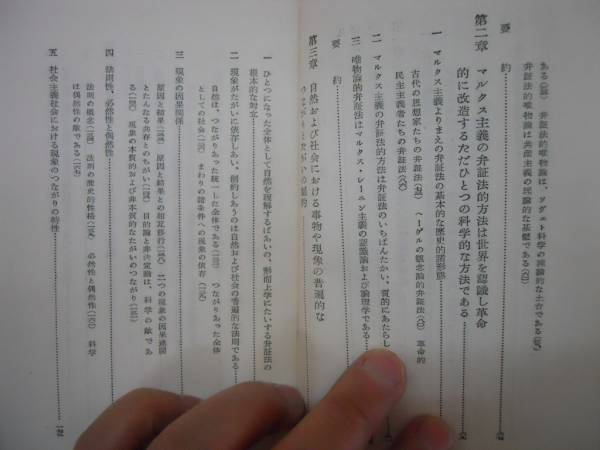 ある 弁証法的唯物論は、ソヴェト科学の理論的な土台である
弁証法的唯物論は共産主義の理論的な基礎である
要 約
第二章 マルクス主義の弁証法的方法は世界を認識し革命
的に改造するただひとつの科学的な方法である
一 マルクス主義よりまえの弁証法の基本的な歴史的諸形態
古代の思想家たちの弁証法 ヘーゲルの観念論的弁証法 革命的
民主主義者たちの弁証法
二 マルクス主義の弁証法的方法は弁証法のいちばんたかい、質的にあたらし
三 唯物論的弁証法はマルクス・レーニン主義の認識論および論理学である
要 約
第三章 自然および社会における事物や現象の普遍的な
一 ひとつになった全体として自然を理解するばあいの、形而上学にたいする弁証法の
根本的な対立
二 現象がたがいに依存しあい、制約しあうのは自然および社会の普遍的な法則である
自然は、つながりあった統一した全体である つながりあった全体
としての社会 まわりの諸条件への現象の依存
三 現象の因果関係
原因と結果 原因と結果との相互移行 二つの現象の因果連関
とたんなる共存とのちがい 目的論と非決定論は、科学の敵であ
る 現象の本質的および非本質的なたがいのつながり
四 法則性、必然性と偶然性
法則の概念 法則の歴史的性格 必然性と偶然性 科学
は偶然性の敵である
五 社会主義社会における現象のつながりの特性